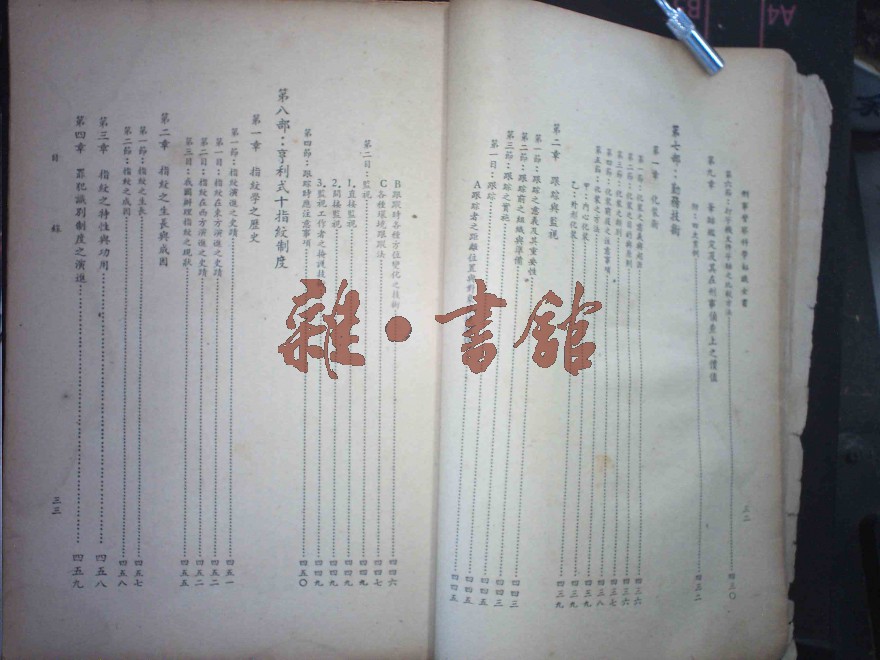 刑事警察科學知識全書
三二
第六節：打字機文件字跡之比較方法……四三〇
第九章 筆跡鑑定及其在刑事偵查上之價值
附：四大實例……四三二
第七部：勤務技術
第一章 化裝術
第一節：化裝之意義與起源……四三六
第二節：化裝之
第三節：化裝之類別……四三七
第四節：化裝前後之注意事項……四三八
第五節：化裝之方法……四三九
甲：內心化裝……四三九
乙：外形化裝……四三九
第二章 跟踪與監視
第一節：跟踪之意義及其重要性……四四三
第二節：跟踪前之組織與準備……四四三
第三節：跟踪之實施……四四五
第一目：跟踪……四四五
A跟踪者之距離位置與……四四五
B跟踪時各種方位變化之技術……四四六
C各種環境跟踪法……四四七
第二目：監視……四四九
1.直接監視……四四九
2.間接監視……四四九
3.監視工作者之掩護技……四四九
第四節：跟踪時應注意事項……四五〇
第八部：亨利式十指紋制度
第一章 指紋學之歷史
第一節：指紋演進之史蹟……四五一
第一目：指紋在東方演進之史蹟……四五二
第二目：指紋在西方演進之史蹟……四五二
第三目：我國辦理指紋之現狀……四五五
第二章 指紋之生長與成因
第一節：指紋之生長……四五七
第二節：指紋之成因……四五八
第三章 指紋之特性與功用……四五八
第四章 罪犯識別制度之演進……四五九
目 錄
三三
雜·書館
A4